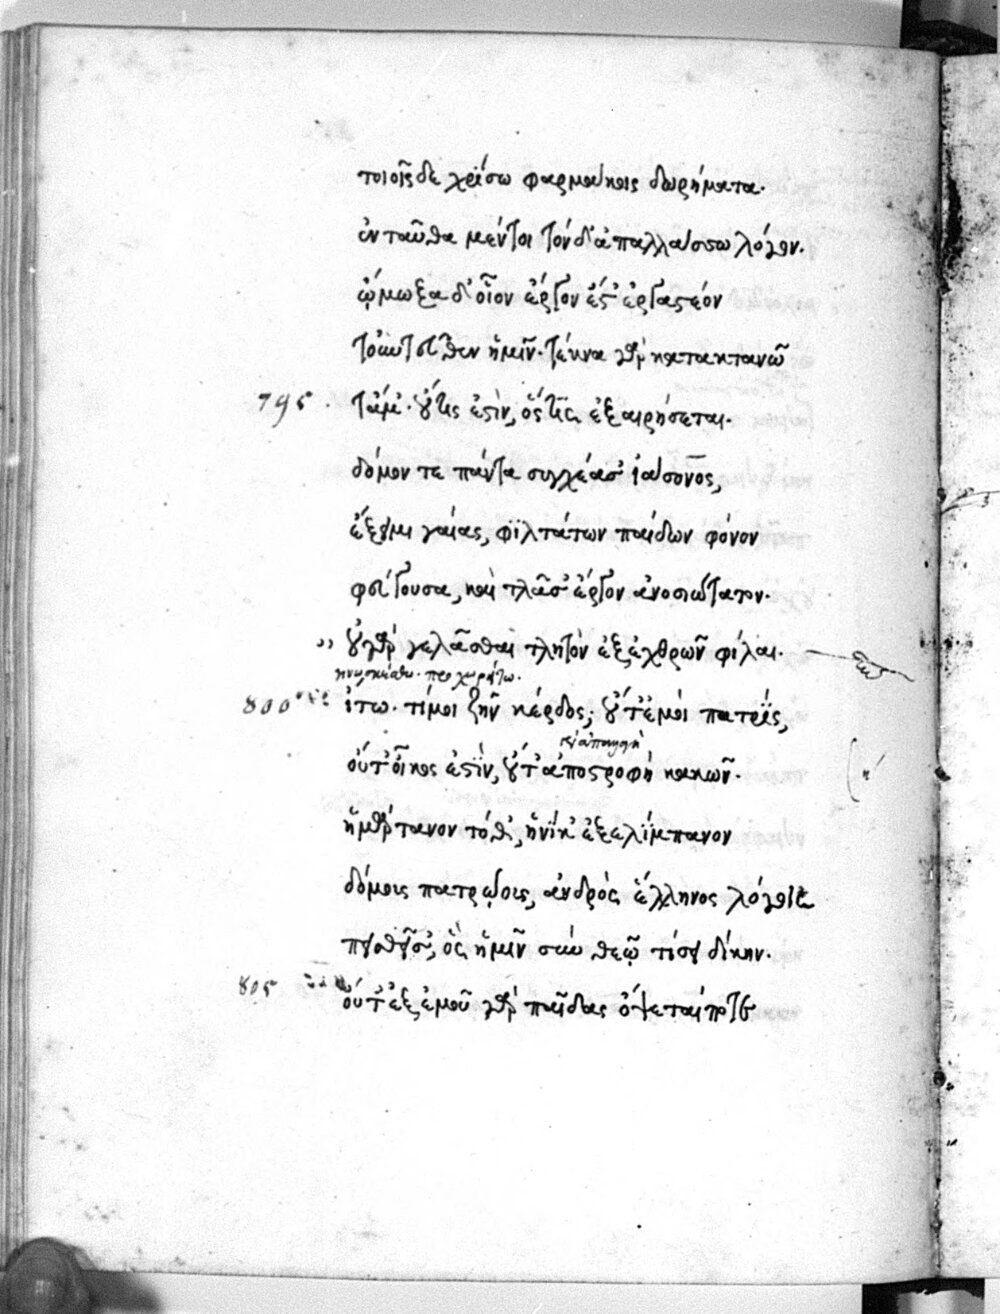 τοιοῖς δὲ χρίσω φαρμάκοις δωρήματα·
ἐνταῦθα μέντοι τόνδ' ἀπαλλάσσω λόγον.
ᾤμωξα δ' οἷον ἔργον ἔστ' ἐργαστέον
τοὐντεῦθεν ἡμῖν· τέκνα γὰρ κατακτανῶ
795. τἄμ'· οὔτις ἐστὶν, ὅστις ἐξαιρήσεται.
δόμον τε πάντα συγχέασ' ἰάσονος,
ἔξειμι γαίας, φιλτάτων παίδων φόνον
φεύγουσα, καὶ τλᾶσ' ἔργον ἀνοσιώτατον·
οὐ γὰρ γελᾶσθαι τλητὸν ἐξ ἐχθρῶν φίλαι·
800 ἴτω· τί μοι ζῆν κέρδος; οὔτ' ἐμοὶ πατρίς,
οὔτ' οἶκος ἐστὶν, οὔτ' ἀποστροφὴ κακῶν·
ἡμάρτανον τόθ', ἡνίκ' ἐξελίμπανον
δόμοις πατρῴοις, ἀνδρὸς ἕλληνος λόγοις
πεισθεῖσ', ὃς ἡμῖν σὺν θεῷ τίσει δίκην.
805 οὔτ' ἐξ ἐμοῦ γὰρ παῖδας ὄψεταί ποτε